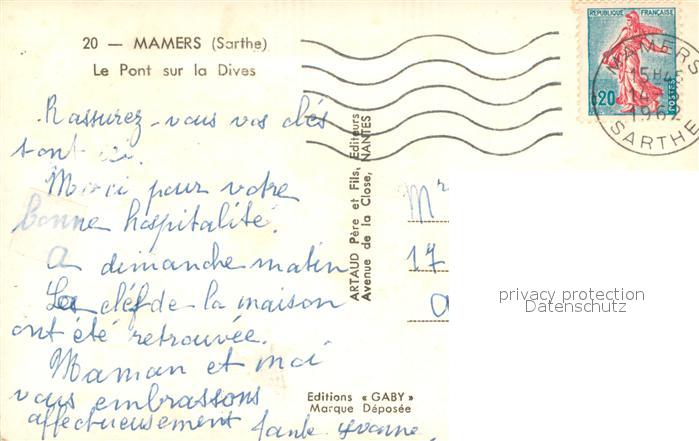 20 — MAMERS (Sarthe)
Le Pont sur la Dives
Rassurez-vous vos clés
sont ici.
Merci pour votre
bonne hospitalité.
A dimanche matin
La clef de la maison
ont été retrouvée.
Maman et moi
vous embrassons
affectueusement tante Yvonne
ARTAUD Père et Fils, Editeurs
Avenue de la Close, NANTES
Editions « GABY »
Marque Déposée
REPUBLIQUE FRANÇAISE
0,20
POSTES
MAMERS
15H45
SARTHE
Mr
17
privacy protection
Datenschutz